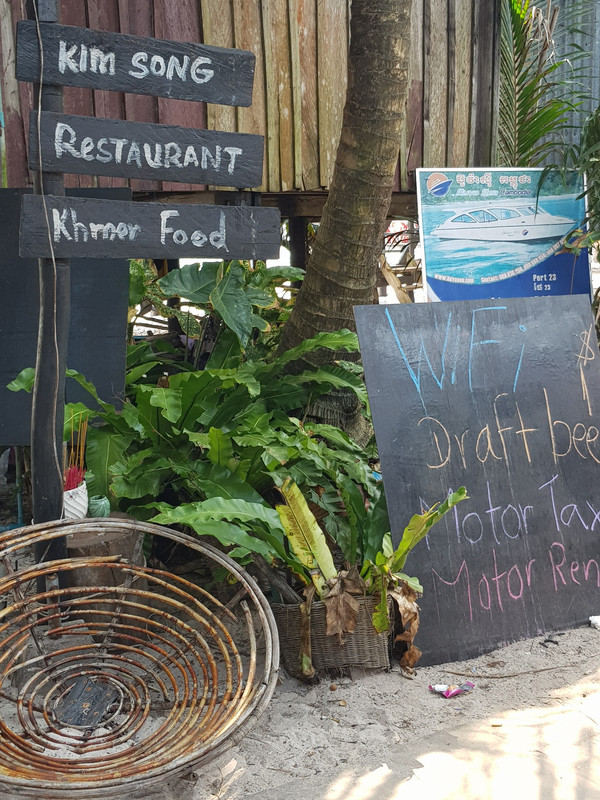 Kim SONG
RestAURANT
Khmer Food
Port 23
WiFi
$1
Draft bee
Motor Tax
Motor Ren